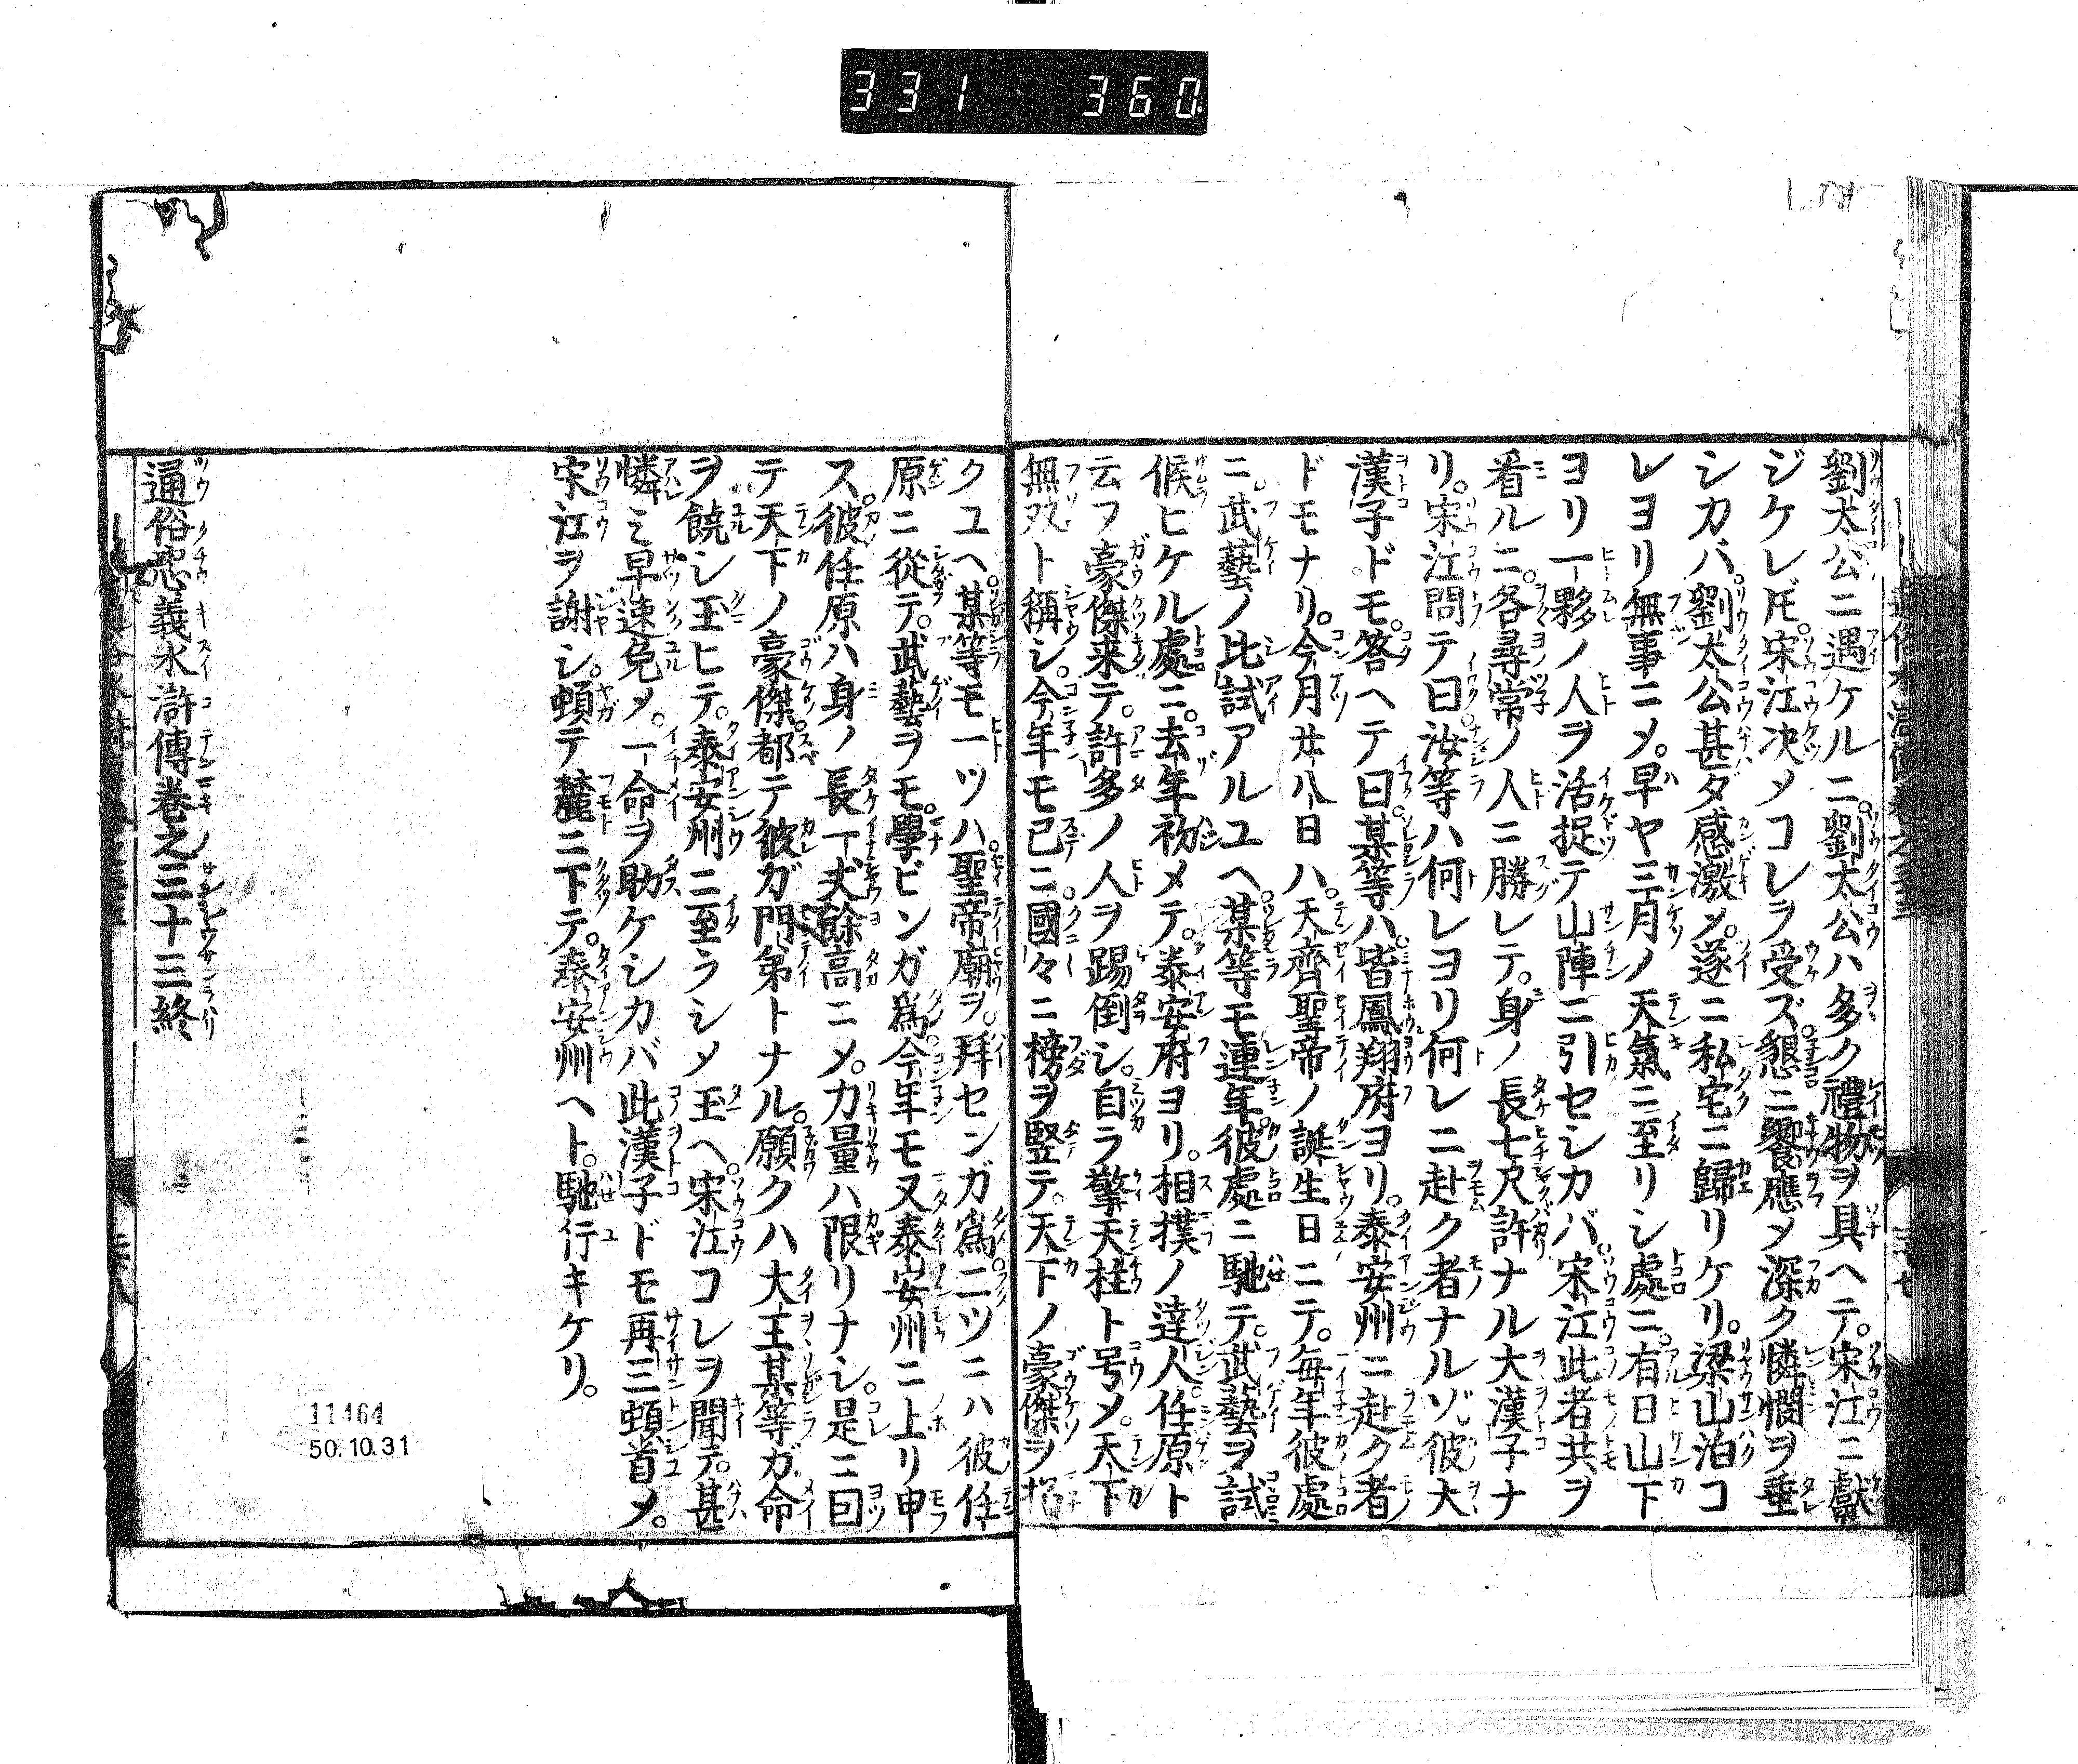 331 360
劉太公ニ遇ケルニ。劉太公ハ多ク禮物ヲ具ヘテ。宋江ニ獻
ジケレ𪜈。宋江决メコレヲ受ズ。懇ニ饗應メ深ク憐憫ヲ垂
シカバ。劉太公甚ダ感激メ。遂ニ私宅ニ歸リケリ。梁山泊コ
レヨリ無事ニメ。早ヤ三月ノ天氣ニ至リシ處ニ。有日山下
ヨリ一夥ノ人ヲ活捉テ山陣ニ引セシカバ。宋江此者共ヲ
看ルニ。各尋常ノ人ニ勝レテ。身ノ長七尺許ナル大漢子ナ
リ。宋江問テ曰汝等ハ何レヨリ何レニ赴ク者ナルゾ。彼大
漢子ドモ。答ヘテ曰。某等ハ。皆鳳翔府ヨリ。泰安州ニ赴ク者
ドモナリ。今月廿八日ハ。天齊聖帝ノ誕生日ニテ。毎年彼處
ニ。武藝ノ比試アルユヘ。某等モ連年。彼處ニ馳テ。武藝ヲ試
候ヒケル處ニ。去年初メテ。泰安府ヨリ。相撲ノ達人。任原ト
云フ豪傑来テ。許多ノ人ヲ踢倒シ。自ラ擎天柱ト号メ。天下
無双ト稱シ。今年モ已ニ。國々ニ榜ヲ竪テ。天下ノ豪傑ヲ招
クユヘ。某等モ一ツハ。聖帝廟ヲ。拜センガ爲。二ツニハ彼任
原ニ從テ。武藝ヲモ。學ビンガ爲。今年モ又泰安州ニ上リ申
ス。彼任原ハ身ノ長一丈餘高ニメ。力量ハ限リナシ。是ニ因
テ天下ノ豪傑。都テ彼ガ門弟トナル。願クハ大王某等ガ命
ヲ饒シ玉ヒテ。泰安州ニ至ラシメ玉ヘ。宋江コレヲ聞テ。甚
憐ミ早速免メ。一命ヲ助ケシカバ此漢子ドモ再三頓首メ。
宋江ヲ謝シ。頓テ麓ニ下テ。泰安州ヘト。馳行キケリ。
通俗忠義水滸傳巻之三十三終
11464
50.10.31